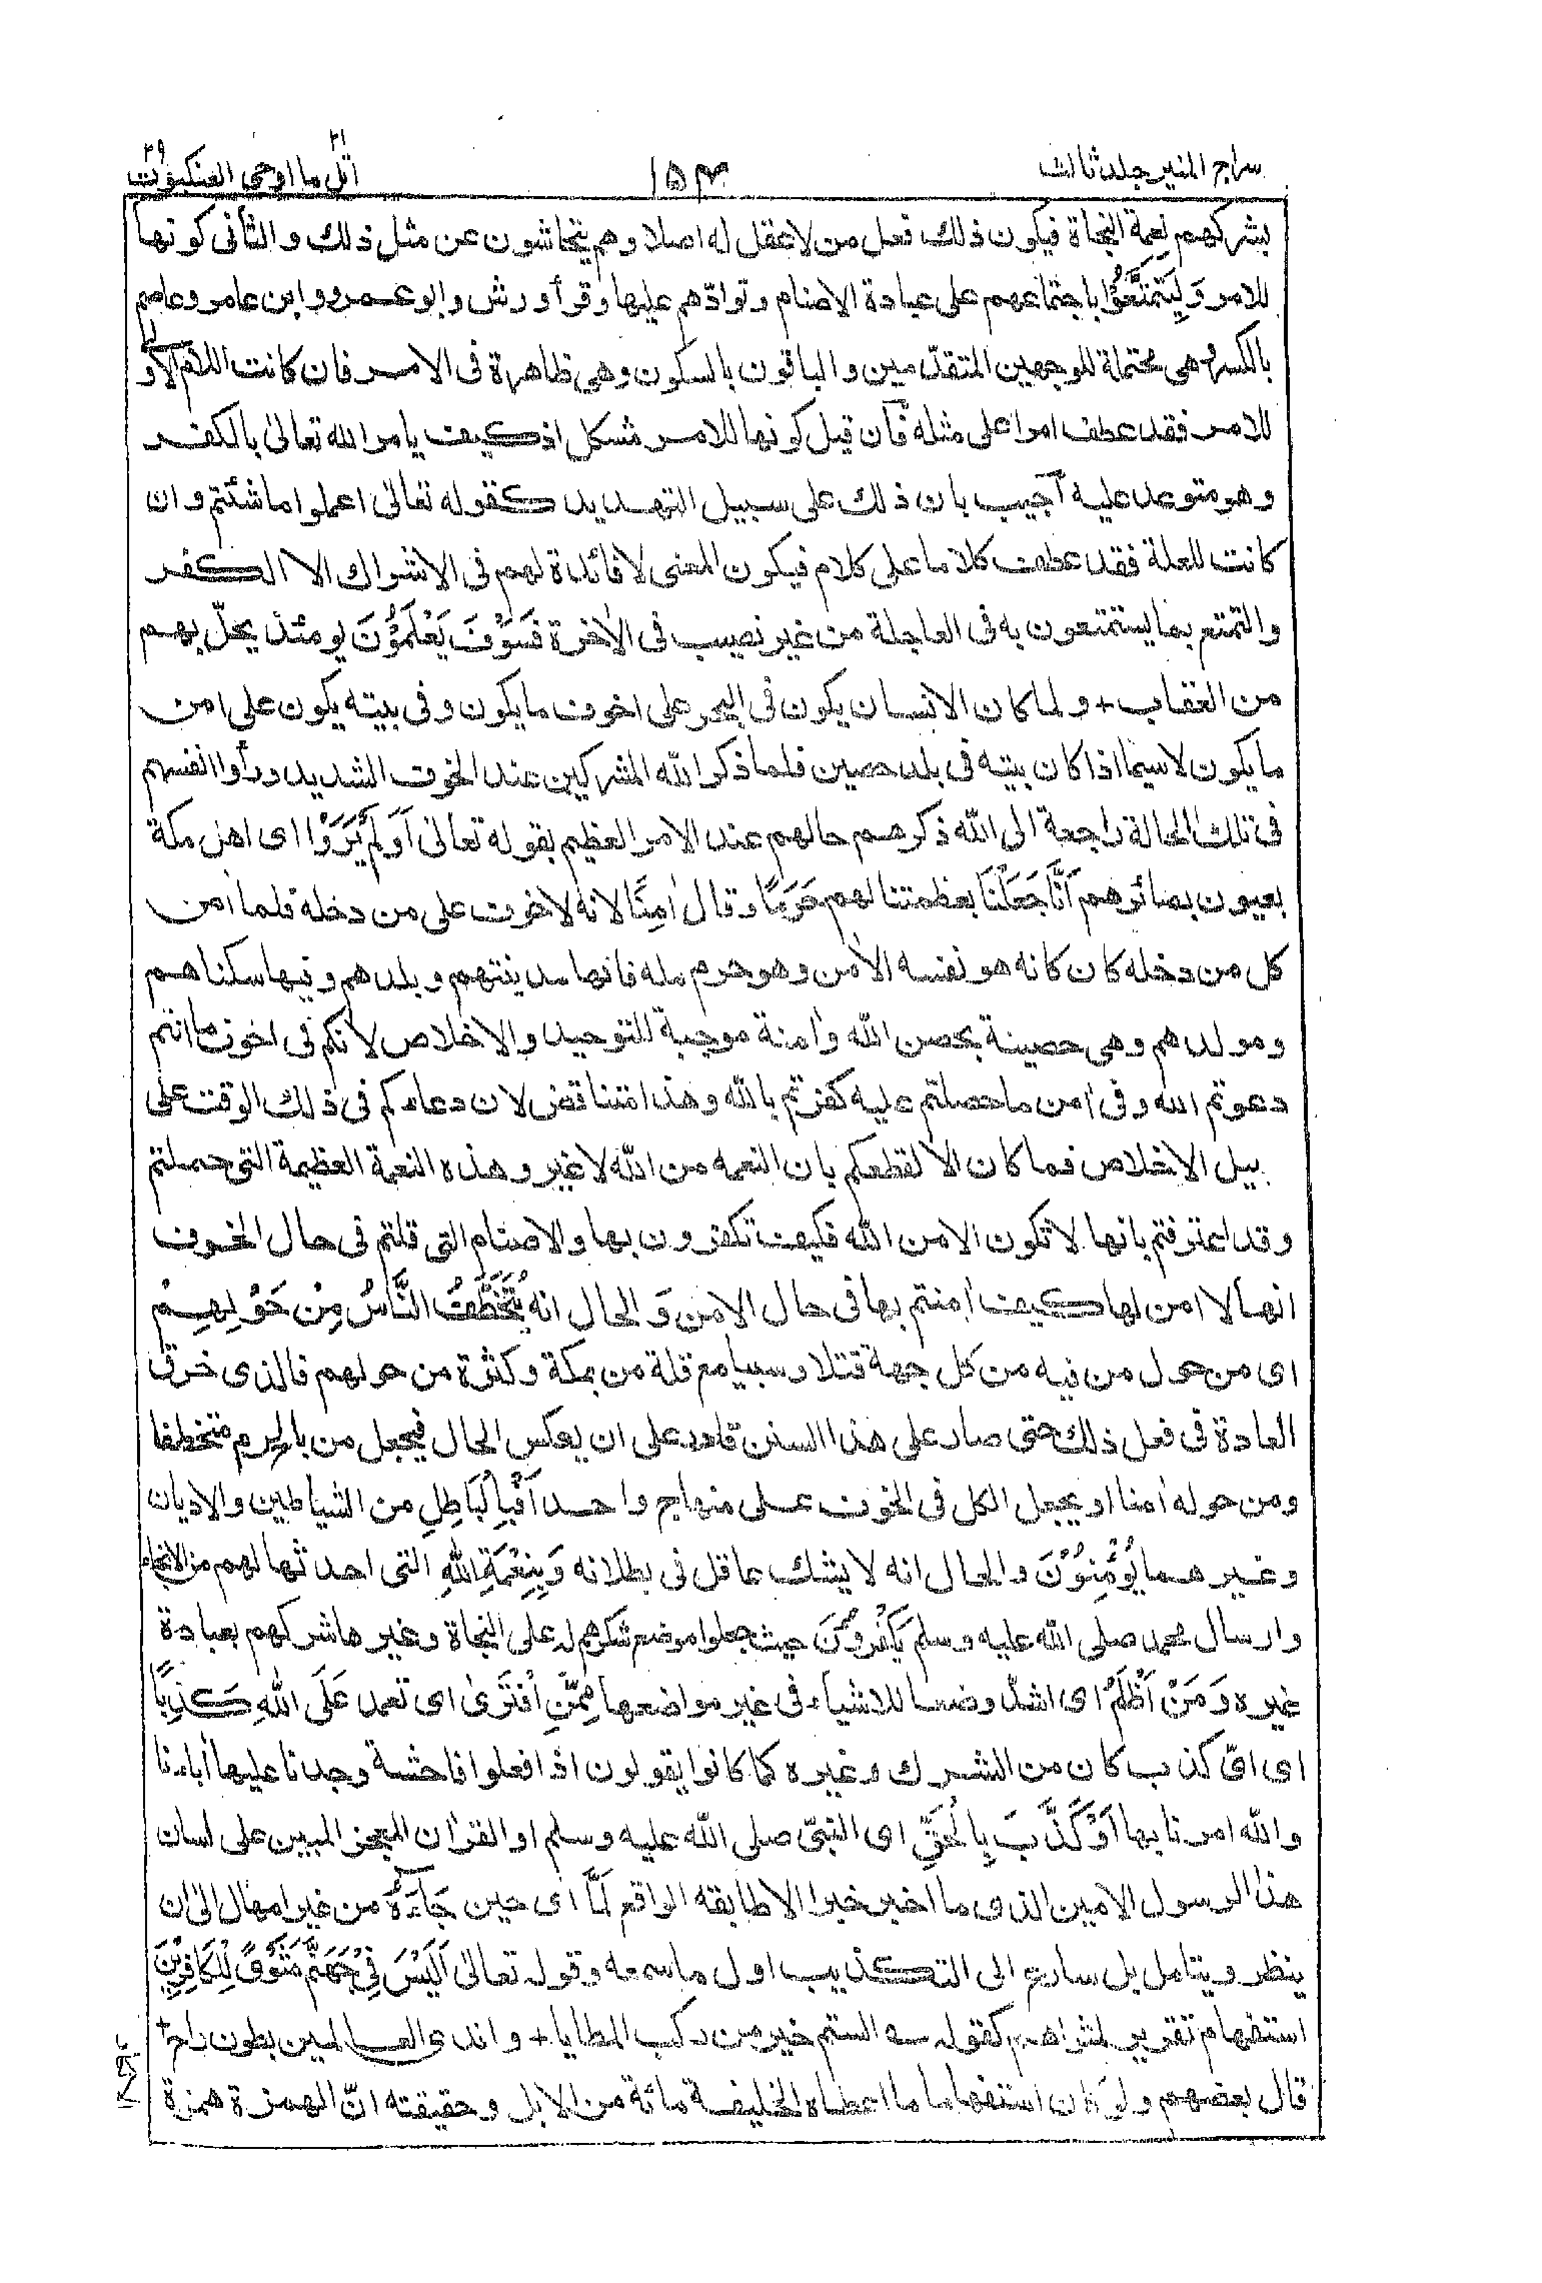 سراج المنير جلد ثالث
١٥٣
اتل ما اوحى ٢١ العنكبوت ٢٩
بشركهم نعمة النجاة فيكون ذلك فعل من لا عقل له اصلا وهم يتحاشون عن مثل ذلك والثانى كونها
للامر وَلِيَتَمَتَّعُوْا باجتماعهم على عبادة الاصنام وتوادّهم عليها وقرأ ورش وابو عمرو وابن عامر وعاصم
بالكسر وهى محتملة للوجهين المتقدّمين والباقون بالسكون وهى ظاهرة فى الامر فان كانت اللام الاولى
للامر فقد عطف امرا على مثله فآن قيل كونها للامر مشكل اذ كيف يامر الله تعالى بالكفر
وهو متوعد عليه آجيب بان ذلك على سبيل التهديد كقوله تعالى اعملوا ما شئتم وان
كانت للعلة فقد عطف كلاما على كلام فيكون المعنى لا فائدة لهم فى الاشراك الا الكفر
والتمتع بما يستمتعون به فى العاجلة من غير نصيب فى الاٰخرة فَسَوْفَ يَعْلَمُوْنَ يومئذ يحلّ بهم
من العقاب + ولما كان الانسان يكون فى البحر على اخوف ما يكون وفى بيته يكون على امن
ما يكون لا سيما اذا كان بيته فى بلد حصين فلما ذكر الله المشركين عند الخوف الشديد ورأوا انفسهم
فى تلك الحالة راجعة الى الله ذكرهم حالهم عند الامر العظيم بقوله تعالى اَوَلَمْ يَرَوْا اى اهل مكة
بعيون بصائرهم اَنَّا جَعَلْنَا بعظمتنا لهم حَرَمًا وقال اٰمِنًا لانه لا خوف على من دخله فلما امن
كل من دخله كان كانه هو نفسه الاٰمن وهو حرم مكة فانها مدينتهم وبلدهم وفيها سكناهم
ومولدهم وهى حصينة بحصن الله واٰمنة موجبة للتوحيد والاخلاص لانكم فى اخوف ما انتم
دعوتم الله وفى امن ما حصلتم عليه كفرتم بالله وهذا متناقض لان دعاءكم فى ذلك الوقت على
بيل الاخلاص فما كان الا لقطعكم بان النعمه من الله لا غير وهذه النعمة العظيمة التى حصلتم
وقد اعترفتم بانها لا تكون الا من الله فكيف تكفرون بها والاصنام التى قلتم فى حال الخوف
انها لا امن لها كيف اٰمنتم بها فى حال الامن وَ الحال انه يُتَخَطَّفُ النَّاسُ مِنْ حَوْلِهِمْ
اى من حول من فيه من كل جهة قتلا وسبيا مع قلة من بمكة وكثرة من حولهم فالذى خرق
العادة فى فعل ذلك حتى صار على هذا السنن قادر على ان يعكس الحال فيجعل من بالحرم متخطفا
ومن حوله اٰمنا او يجعل الكل فى الخوف على منهاج واحد اَفَبِالْبَاطِلِ من الشياطين والاديان
وغيرهما يُؤْمِنُوْنَ والحال انه لا يشك عاقل فى بطلانه وَبِنِعْمَةِ اللهِ التى احدثها لهم من الانجاء
وارسال محمد صلى الله عليه وسلم يَكْفُرُوْنَ حيث جعلوا موضع شكرهم له على النجاة وغيرها شركهم بعبادة
غيره وَمَنْ اَظْلَمُ اى اشدّ وضعا للاشياء فى غير مواضعها مِمَّنِ افْتَرٰى اى تعمد عَلَى اللهِ كَذِبًا
اى اىّ كذب كان من الشرك وغيره كما كانوا يقولون اذا فعلوا فاحشة وجدنا عليها اٰباءنا
والله امرنا بها اَوْ كَذَّبَ بِالْحَقِّ اى النبىّ صلى الله عليه وسلم او القراٰن المعجز المبين على لسان
هذا الرسول الامين الذى ما اخبر خبرا الا طابقه الواقع لَمَّا اى حين جَآءَهٗ من غير امهال الى ان
ينظر ويتامل بل سارع الى التكذيب اول ما سمعه وقوله تعالى اَلَيْسَ فِىْ جَهَنَّمَ مَثْوًى لِّلْكَافِرِيْنَ
استفهام تقرير لمثواهم كقوله سه الستم خير من ركب المطايا + واندى العالمين بطون راح +
قال بعضهم ولو كان استفهاما ما اعطاه الخليفة مائة من الابل وحقيقته انّ الهمزة همزة